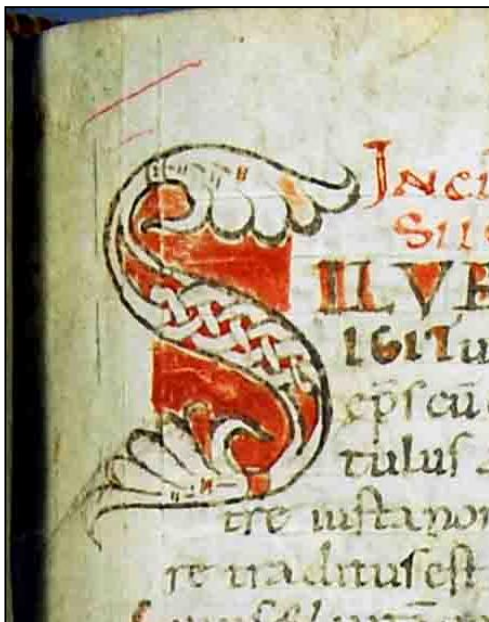 INCI
SIL
SILVE
IGITu
ep̅s cu̅
tulus
tre iusta nor
re traditus est